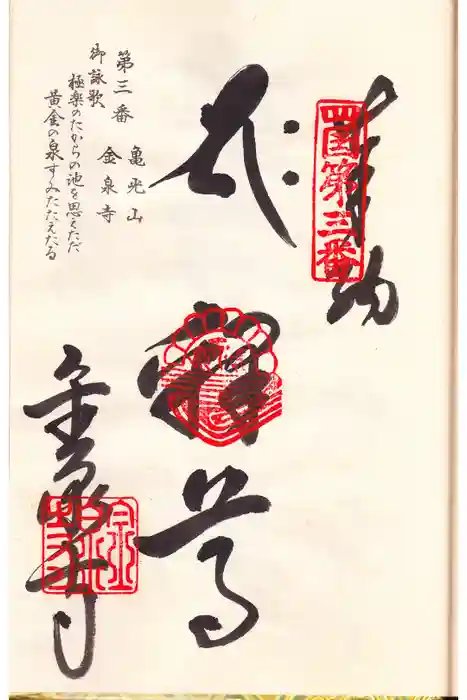 奉納
四国第三番
釋尊
金泉寺
第三番 亀光山
金泉寺
御詠歌
極楽のたからの池を思えただ
黄金の泉すみたたえたる